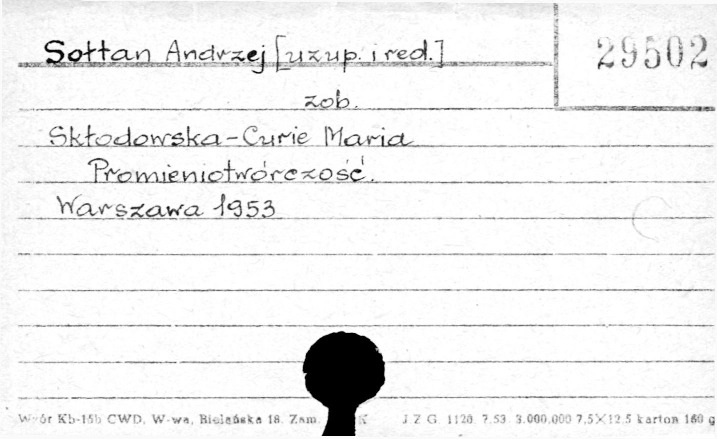 Sołtan Andrzej [uzup. i red.]
29502
zob.
Skłodowska-Curie Maria
Promieniotwórczość.
Warszawa 1953
Wzór Kb-15b CWD, W-wa, Bielańska 18. Zam. K J Z G 1120 7.53 3.000.000 7,5×12.5 karton 160 g